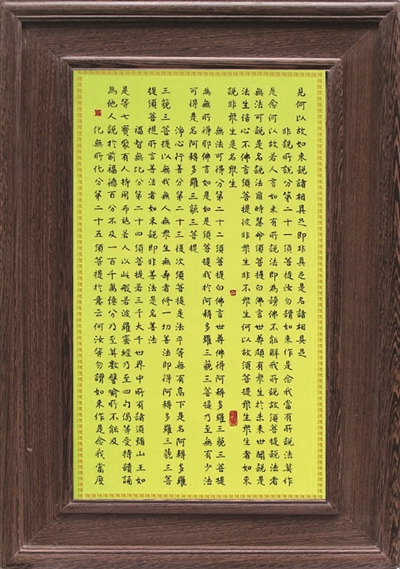 見何以故如來說諸相具足即非具足是名諸相具足
非說所說分第二十一須菩提汝勿謂如來作是念我當有所說法莫作
是念何以故若人言如來有所說法即為謗佛不能解我所說故須菩提說法者
無法可說是名說法爾時慧命須菩提白佛言世尊頗有眾生於未來世聞說是
法生信心不佛言須菩提彼非眾生非不眾生何以故須菩提眾生眾生者如來
說非眾生是名眾生
無法可得分第二十二須菩提白佛言世尊佛得阿耨多羅三藐三菩提
為無所得耶佛言如是如是須菩提我於阿耨多羅三藐三菩提乃至無有少法
可得是名阿耨多羅三藐三菩提
淨心行善分第二十三復次須菩提是法平等無有高下是名阿耨多羅
三藐三菩提以無我無人無眾生無壽者修一切善法即得阿耨多羅三藐三菩
提須菩提所言善法者如來說即非善法是名善法
福智無比分第二十四須菩提若三千大千世界中所有諸須彌山王如
是等七寶聚有人持用布施若人以此般若波羅蜜經乃至四句偈等受持讀誦
為他人說於前福德百分不及一百千萬億分乃至算數譬喻所不能及
化無所化分第二十五須菩提於意云何汝等勿謂如來作是念我當度